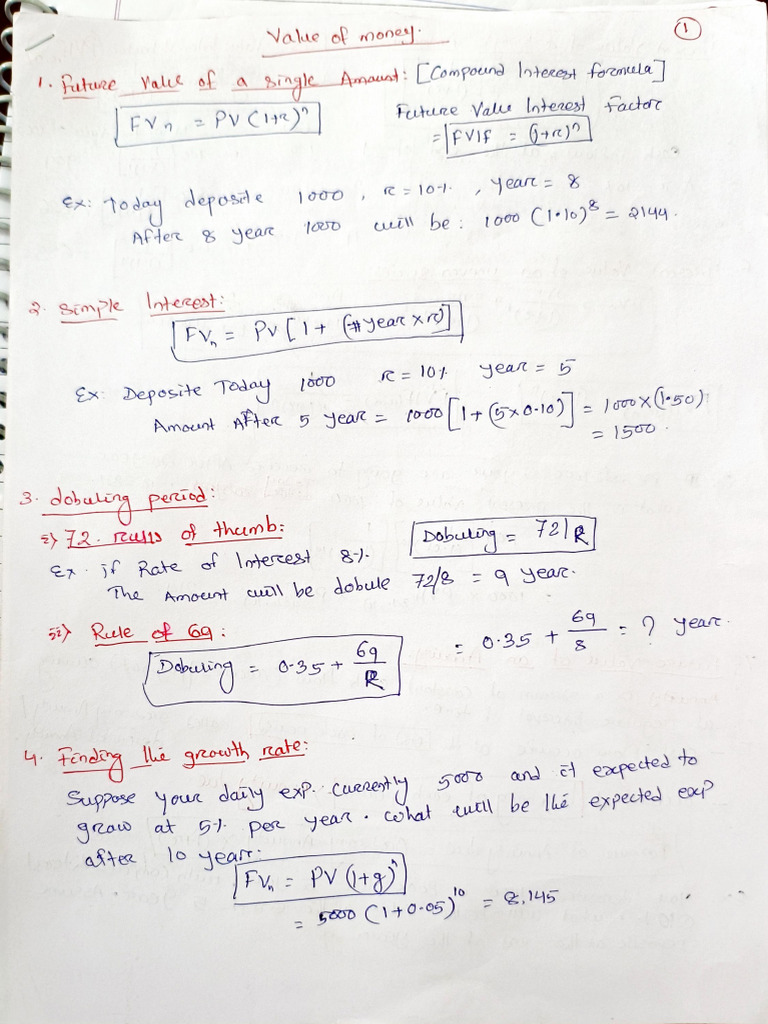 Value of money.
1
1. Future Value of a single Amount: [Compound Interest formula]
FVn = PV(1+r)^n
Future Value Interest Factor
= FVIF = (1+r)^n
Ex: Today deposite 1000, r = 10%, year = 8
After 8 year 1000 will be: 1000 (1.10)^8 = 2144.
2. Simple Interest:
FVn = PV[1 + (#year × r)]
Ex: Deposite Today 1000 r = 10% year = 5
Amount After 5 year = 1000[1 + (5×0.10)] = 1000×(1.50)
= 1500.
3. dobuling period:
i) 72. rules of thumb:
Dobuling = 72/R
Ex. if Rate of Interest 8%.
The Amount will be dobule 72/8 = 9 year.
ii) Rule of 69:
Dobuling = 0.35 + 69/R
= 0.35 + 69/8 = ? year.
4. Finding the growth rate:
Suppose your daily exp. currently 5000 and it expected to
grow at 5% per year. What will be the expected exp?
after 10 year:
FVn = PV(1+g)^n
= 5000 (1+0.05)^10 = 8,145